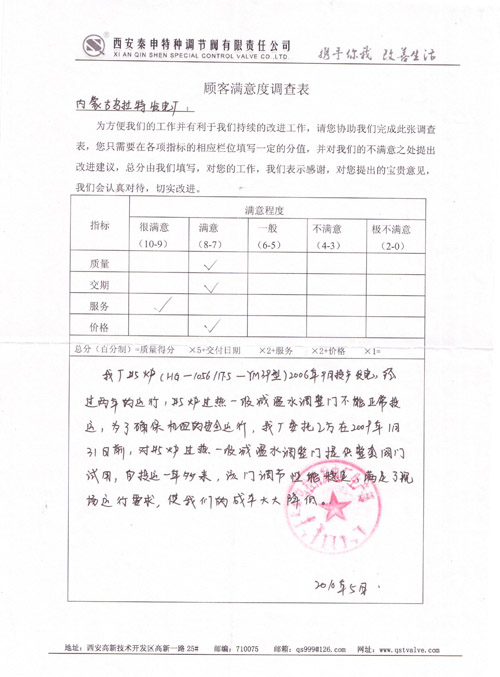 西安秦申特种调节阀有限责任公司
XI AN QIN SHEN SPECIAL CONTROL VALVE CO.,LTD.
携手你我 改善生活
顾客满意度调查表
内蒙古乌拉特发电厂:
为方便我们的工作并有利于我们持续的改进工作，请您协助我们完成此张调查
表，您只需要在各项指标的相应栏位填写一定的分值，并对我们的不满意之处提出
改进建议，总分由我们填写，对您的工作，我们表示感谢，对您提出的宝贵意见，
我们会认真对待，切实改进。
指标 满意程度
很满意 满意 一般 不满意 极不满意
(10-9) (8-7) (6-5) (4-3) (2-0)
质量 ✓
交期 ✓
服务 ✓
价格 ✓
总分（百分制）=质量得分 ×5+交付日期 ×2+服务 ×2+价格 ×1=
我厂#5炉(HG-1056/17.5-YM39型)2006年9月投产发电，经
过两年的运行，#5炉过热一级减温水调整门不能正常投
运，为了确保机组的安全运行，我厂委托乙方在2009年1月
31日前，对#5炉过热一级减温水调整门提供整套阀门
试用，自投运一年多来，该门调节性能稳定，满足了现
场运行要求，使我们的成本大大降低。
2010年5月
地址：西安高新技术开发区高新一路25# 邮编：710075 邮箱：qs999@126.com 网址：www.qstvalve.com